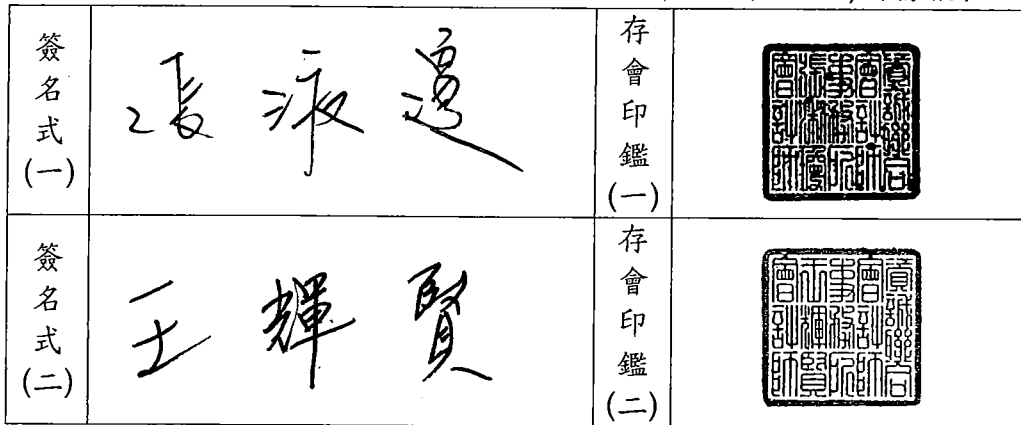 簽名式(一)
張淑瓊
存會印鑑(一)
資誠聯合
會計師
事務所
張淑瓊
會計師
簽名式(二)
王輝賢
存會印鑑(二)
資誠聯合
會計師
事務所
王輝賢
會計師